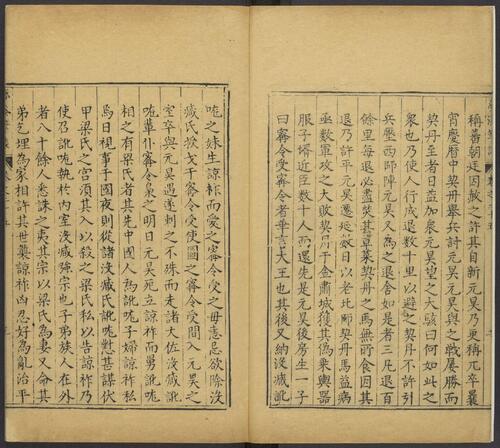 稱蕃朝廷因赦之許其自新元昊乃更稱兀卒曩
宵慶曆中契丹舉兵討元昊元昊與之戰屢勝而
契丹至者日益加衆元昊望之大駭曰何如此之
衆也乃使人行成退數十里以避之契丹不許引
兵壓西師陣元昊又為之退舍如是者三凡退百
餘里每退必盡焚其草萊契丹之馬無所食因其
退乃許平元昊遷延數日以老北師契丹馬益病
亟發軍攻之大敗契丹于金肅城獲其偽乘輿器
服子壻近臣數十人而還先是元昊後房生一子
曰甯令受甯令者華言大王也其後又納沒藏訛
哤之妹生諒祚而愛之甯令受之母恚忌欲除沒
藏氏授戈于甯令受使圖之甯令受間入元昊之
室卒與元昊遇遂刺之不殊而走諸大佐沒藏訛
哤輩仆甯令梟之明日元昊死立諒祚而舅訛哤
相之有梁氏者其先中國人為訛哤子婦諒祚私
焉日視事于國夜則從諸沒藏氏訛哤懟甚謀伏
甲梁氏之宮須其入以殺之梁氏私以告諒祚乃
使召訛哤執於內室沒藏強宗也子弟族人在外
者八十餘人悉誅之夷其宗以梁氏為妻又命其
弟乞埋為家相許其世襲諒祚凶忍好為亂治平